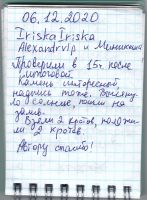 06.12.2020
IriskaIriska
Alexandrvlp и Меникина
Проверили в 15ч после
Камень интересный,
надпись тоже.
сильнее, пошли на
замер.
Взяли 2 крота, положи-
ли 2 кротов.
Автору спасибо!